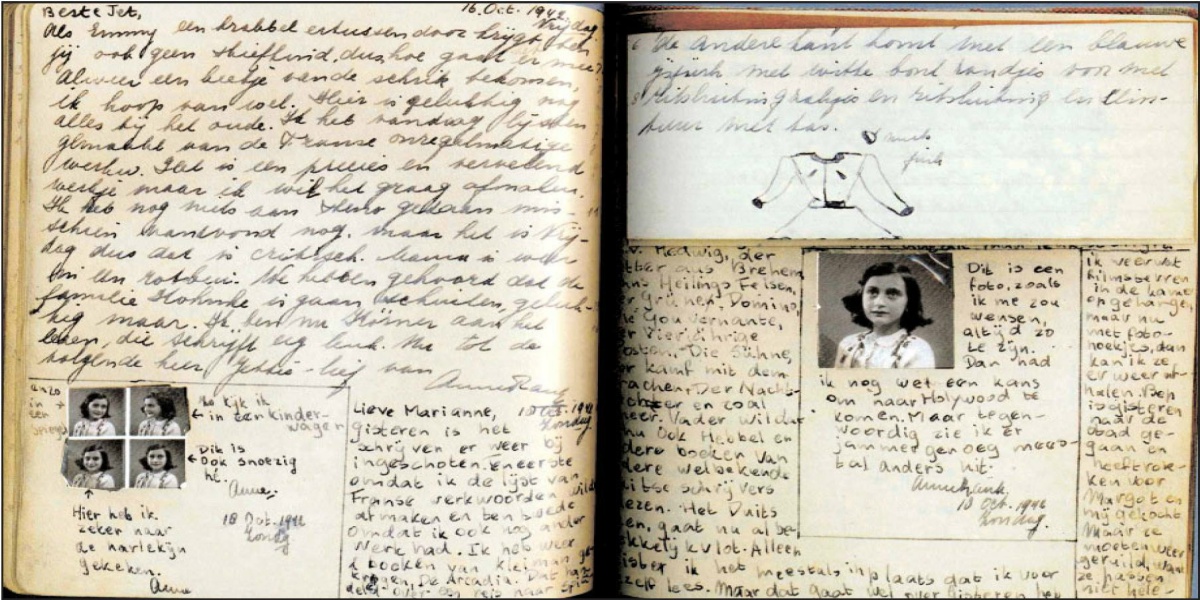 Beste Jet,
16. Oct. 1942
Vrijdag
Als Emmy een krabbel ertussendoor krijgt, ben
jij ook geen stiefkind, dus hoe gaat er mee?
Alweer een beetje van de schrik bekomen,
ik hoop van wel. Hier is gelukkig nog
alles bij het oude. Ik heb vandaag lijsten
gemaakt van de Franse onregelmatige
werkw. Het is een precies en vervelend
werkje maar ik wil het graag afmaken.
Ik heb nog niets aan Steno gedaan mis-
schien vanavond nog. maar het is Vrij-
dag dus dat is critisch. Mama is weer
We hebben gehoord dat de
familie is gaan schuilen, geluk-
kig maar. Ik ben nu Körner aan het
lezen, die schrijft erg leuk. Nu tot de
volgende keer Jettje-lief van
Anne Frank
enzo
in
een
spiegel
Zo kijk ik
in een kinder-
wagen
Dit is
ook snoezig
hè.
Anne.
Hier heb ik
zeker naar
de harlekijn
gekeken.
Anne
18 Oct. 1942
Zondag
Lieve Marianne,
18 Oct. 1942
Zondag
gisteren is het
schrijven er weer bij
ingeschoten. Eneerste
omdat ik de lijst van
Franse werkwoorden wilde
afmaken en ten tweede
omdat ik ook nog ander
werk had. Ik heb weer
2 boeken van kleiman ge-
kregen, De Arcadia. Dat han-
delt over een reis naar Spitz
de andere kant komt met een blauwe
ijsjurk met witte bont randjes voor met
ritssluiting zakjes en ritssluiting en
met tas.
jurk
Hedwig, der
Vetter aus Bremen,
Hans Heilings Felsen,
der Grünen Domino,
die Gouvernante,
der Vierjährige
Posten, Die Sühne,
der Kampf mit dem
Drachen, Der Nacht-
wächter en zoal
meer. Vader wil dat
nu ook Hebbel en
andere boeken van
andere welbekende
Duitse schrijvers
lezen. Het Duits
lezen, gaat nu al be-
trekkelijk vlot. Alleen
fluister ik het meestal in plaats dat ik voor
mezelf lees. Maar dat gaat wel over. Gisteren heb
Dit is een
foto, zoals
ik me zou
wensen,
altijd zo
te zijn.
Dan had
ik nog wel een kans
om naar Holywood te
komen. Maar tegen-
woordig zie ik er
jammer genoeg mees-
tal anders uit.
Anne Frank.
18 Oct. 1942
Zondag
ik veerust
filmsterren
in de kamer
opgehangen,
maar nu
met foto-
hoekjes, dan
kan ik ze
er weer af-
halen. Bep
is gisteren
naar de
stad ge-
gaan en
heeft rok-
ken voor
Margot en
mij gekocht
Maar ze
moeten weer
geruild, want
ze passen
niet hele-